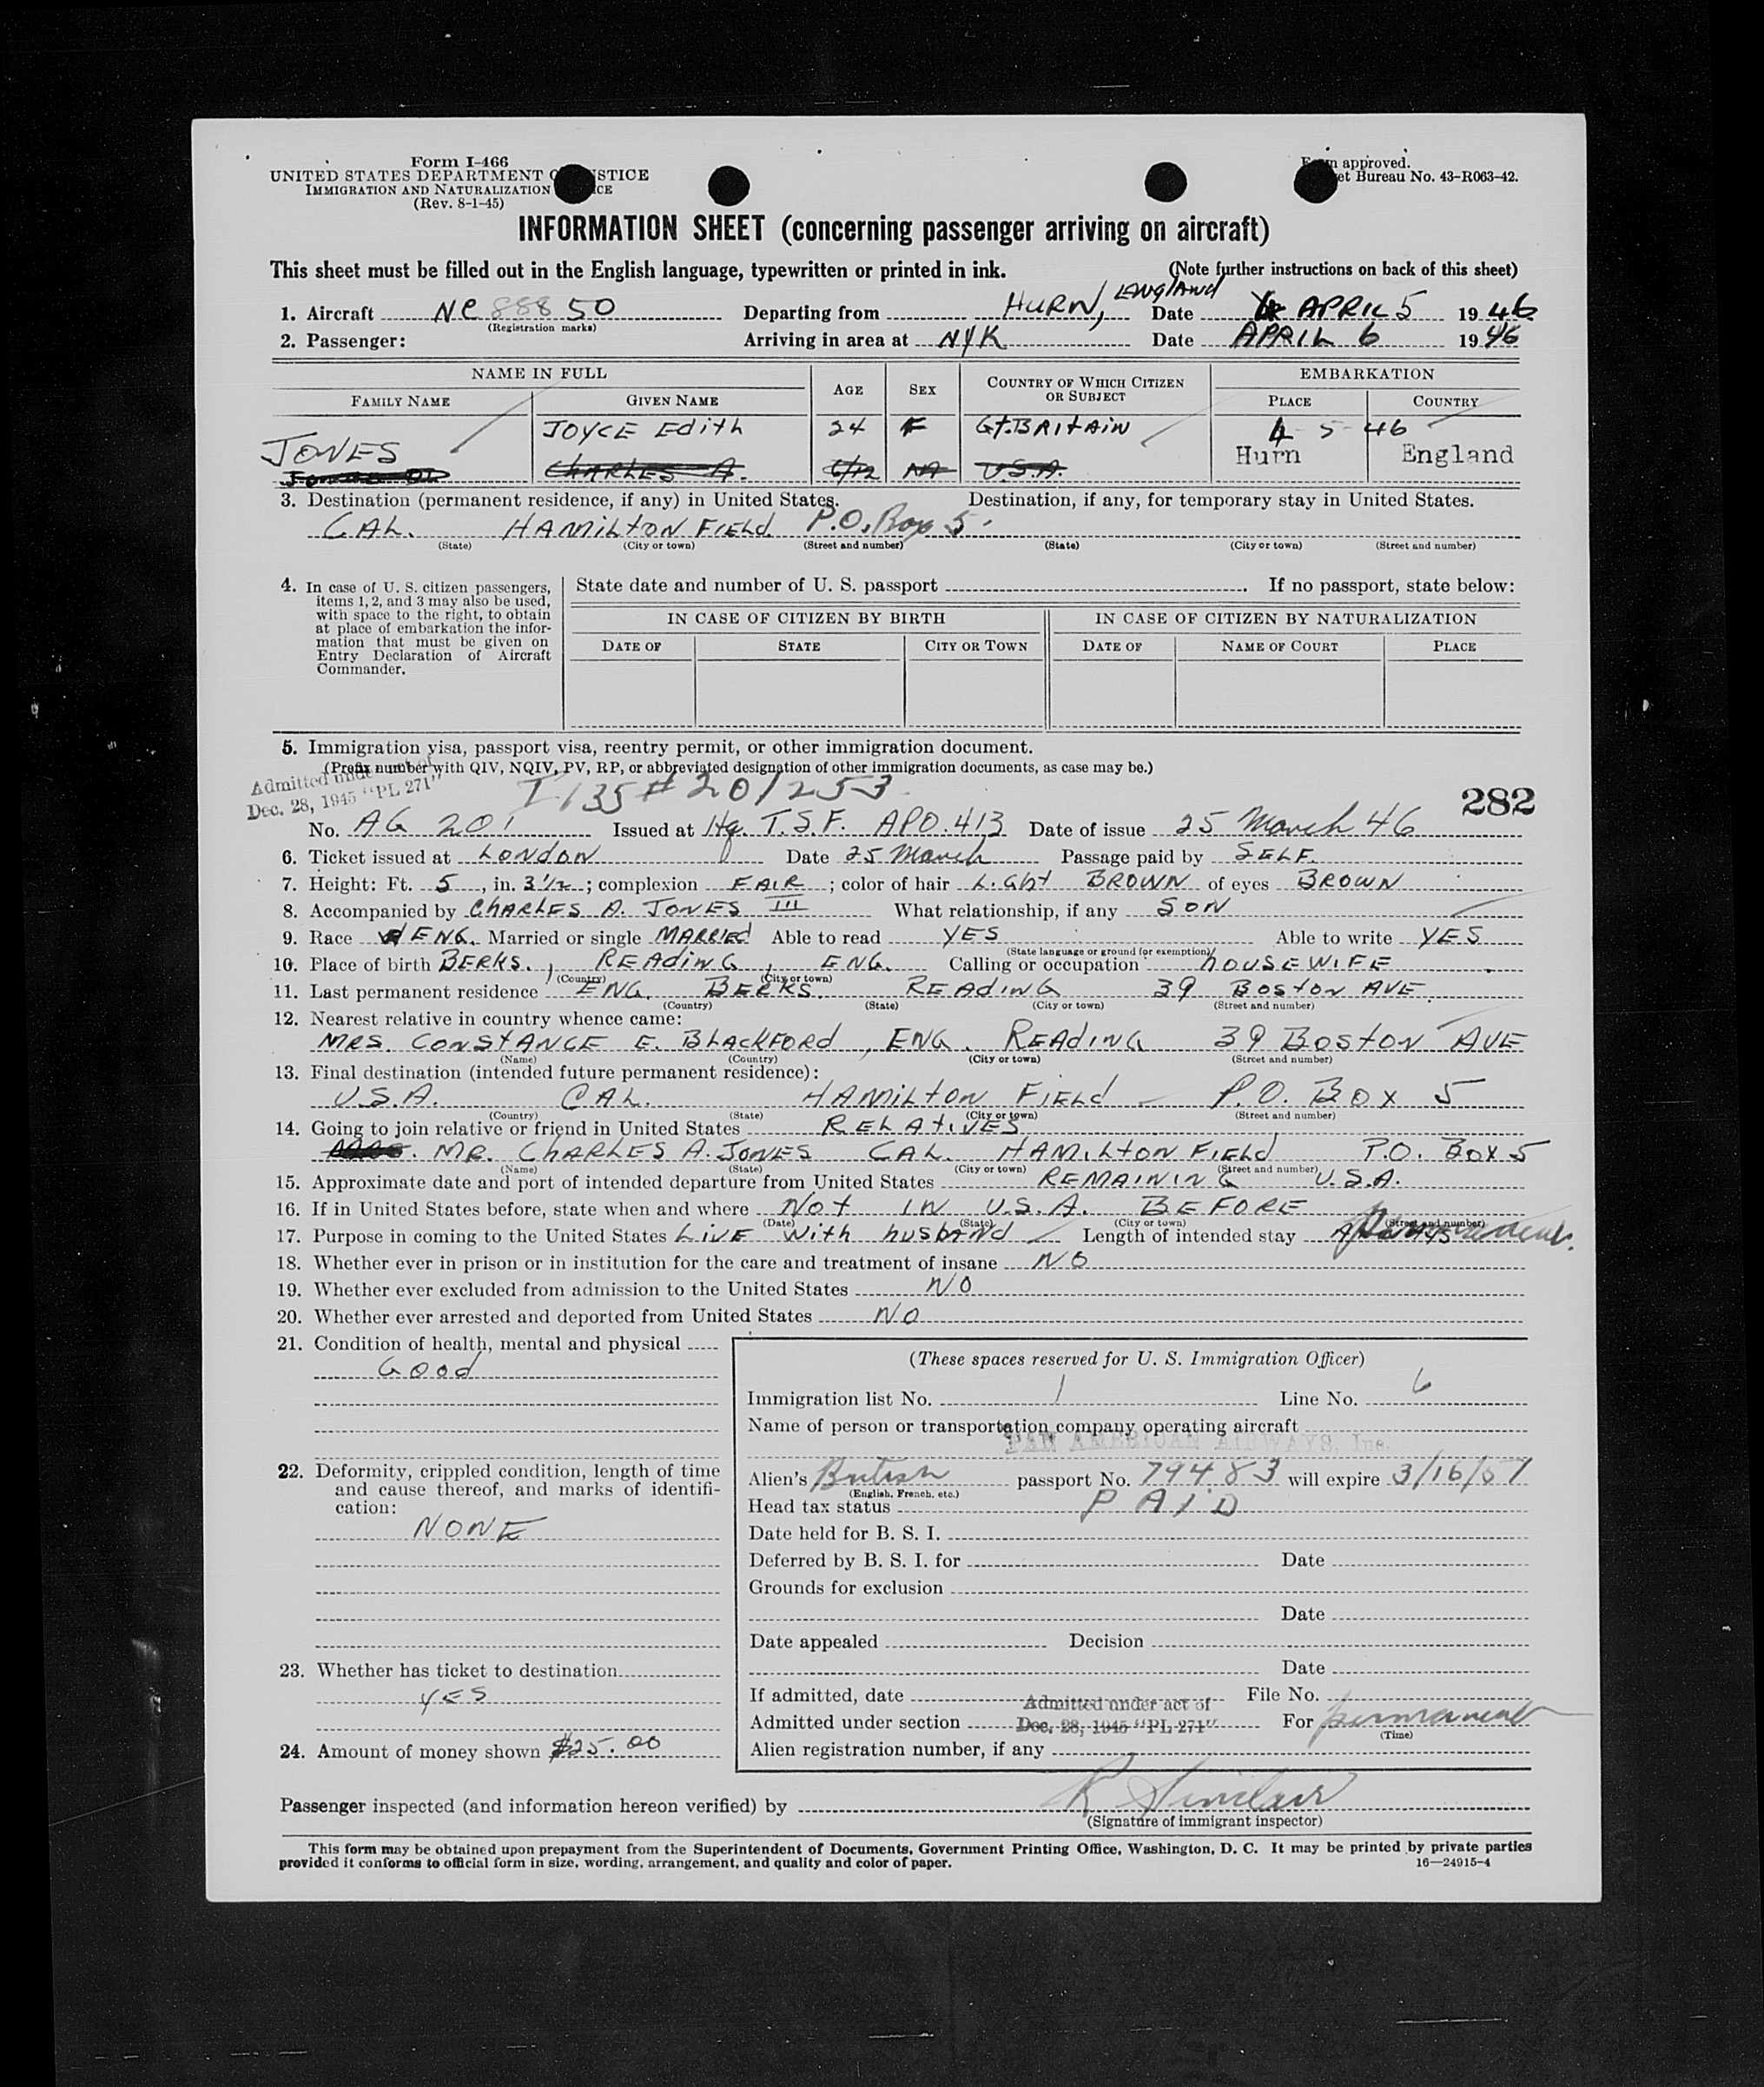 Form I-466
UNITED STATES DEPARTMENT O STICE
IMMIGRATION AND NATURALIZATION ICE
(Rev. 8-1-45)
approved.
et Bureau No. 43-R063-42.
INFORMATION SHEET (concerning passenger arriving on aircraft)
This sheet must be filled out in the English language, typewritten or printed in ink. (Note further instructions on back of this sheet)
1. Aircraft NC 88850 Departing from HURN, ENGLAND Date APRIL 5 1946
(Registration marks)
2. Passenger: Arriving in area at NYK Date APRIL 6 1946
NAME IN FULL AGE SEX COUNTRY OF WHICH CITIZEN OR SUBJECT EMBARKATION
FAMILY NAME GIVEN NAME PLACE COUNTRY
JOYCE Edith 24 F Gt BRITAIN 4 5 46
JONES Hurn England
CHARLES A. 6/12 U.S.A.
3. Destination (permanent residence, if any) in United States. Destination, if any, for temporary stay in United States.
CAL. HAMILTON FIELD P.O. Box 5.
(State) (City or town) (Street and number) (State) (City or town) (Street and number)
4. In case of U. S. citizen passengers, items 1, 2, and 3 may also be used, with space to the right, to obtain at place of embarkation the information that must be given on Entry Declaration of Aircraft Commander.
State date and number of U. S. passport . If no passport, state below:
IN CASE OF CITIZEN BY BIRTH IN CASE OF CITIZEN BY NATURALIZATION
DATE OF STATE CITY OR TOWN DATE OF NAME OF COURT PLACE
5. Immigration visa, passport visa, reentry permit, or other immigration document.
(Prefix number with QIV, NQIV, PV, RP, or abbreviated designation of other immigration documents, as case may be.)
Admitted under act of
Dec. 28, 1945 "PL 271"
I 135 # 201253
282
No. AG 201 Issued at Hq. T.S.F. APO. 413 Date of issue 25 March 46
6. Ticket issued at LONDON Date 25 March Passage paid by SELF.
7. Height: Ft. 5, in. 3 1/2; complexion FAIR; color of hair LIGHT BROWN of eyes BROWN
8. Accompanied by CHARLES A. JONES III What relationship, if any SON
9. Race ENG. Married or single MARRIED Able to read YES Able to write YES
(State language or ground for exemption)
10. Place of birth BERKS., READING, ENG. Calling or occupation HOUSEWIFE
(Country) (City or town)
11. Last permanent residence ENG. BERKS. READING 39 BOSTON AVE.
(Country) (State) (City or town) (Street and number)
12. Nearest relative in country whence came:
MRS. CONSTANCE E. BLACKFORD, ENG. READING 39 BOSTON AVE
(Name) (Country) (City or town) (Street and number)
13. Final destination (intended future permanent residence):
U.S.A. CAL. HAMILTON FIELD P.O. BOX 5
(Country) (State) (City or town) (Street and number)
14. Going to join relative or friend in United States RELATIVES
MR. CHARLES A. JONES CAL. HAMILTON FIELD P.O. BOX 5
(Name) (State) (City or town) (Street and number)
15. Approximate date and port of intended departure from United States REMAINING U.S.A.
16. If in United States before, state when and where NOT IN U.S.A. BEFORE
(Date) (State) (City or town) (Street and number)
17. Purpose in coming to the United States LIVE With husbaNd Length of intended stay Permanent.
18. Whether ever in prison or in institution for the care and treatment of insane NO
19. Whether ever excluded from admission to the United States NO
20. Whether ever arrested and deported from United States NO
21. Condition of health, mental and physical
GOOD
22. Deformity, crippled condition, length of time and cause thereof, and marks of identification:
NONE
23. Whether has ticket to destination
YES
24. Amount of money shown $25.00
(These spaces reserved for U. S. Immigration Officer)
Immigration list No. 1 Line No. 6
Name of person or transportation company operating aircraft
PAN AMERICAN AIRWAYS, Inc.
Alien's British passport No. 79483 will expire 3/16/57
(English, French, etc.)
Head tax status PAID
Date held for B. S. I.
Deferred by B. S. I. for Date
Grounds for exclusion
Date
Date appealed Decision
Date
If admitted, date File No.
Admitted under act of
Admitted under section Dec. 28, 1945 "PL 271" For permanent
(Time)
Alien registration number, if any
Passenger inspected (and information hereon verified) by R Sinclair
(Signature of immigrant inspector)
This form may be obtained upon prepayment from the Superintendent of Documents, Government Printing Office, Washington, D. C. It may be printed by private parties
provided it conforms to official form in size, wording, arrangement, and quality and color of paper. 16—24915-4